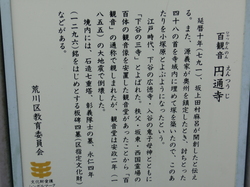 百観音 円通寺
ひゃっかんのん えんつうじ
延暦十年（七九一）、坂上田村麻呂が開創したと伝え
る。また、源義家が奥州を鎮定したとき、討ちとった
四十八の首を寺域内に埋めて塚を築いたので、このあ
たりを小塚原とよぶようになったという。
江戸時代、下谷の広徳寺・入谷の鬼子母神とともに
「下谷の三寺」とよばれた。秩父・坂東・西国霊場の
百体の観音像を安置した観音堂があったことから「百
観音」の通称で親しまれたが、観音堂は安政二年（一
八五五）の大地震で倒壊した。
境内には、石造七重塔、彰義隊士の墓、永仁四年
（一二九六）銘をはじめとする板碑四基（区指定文化財）
などがある。
荒川区教育委員会